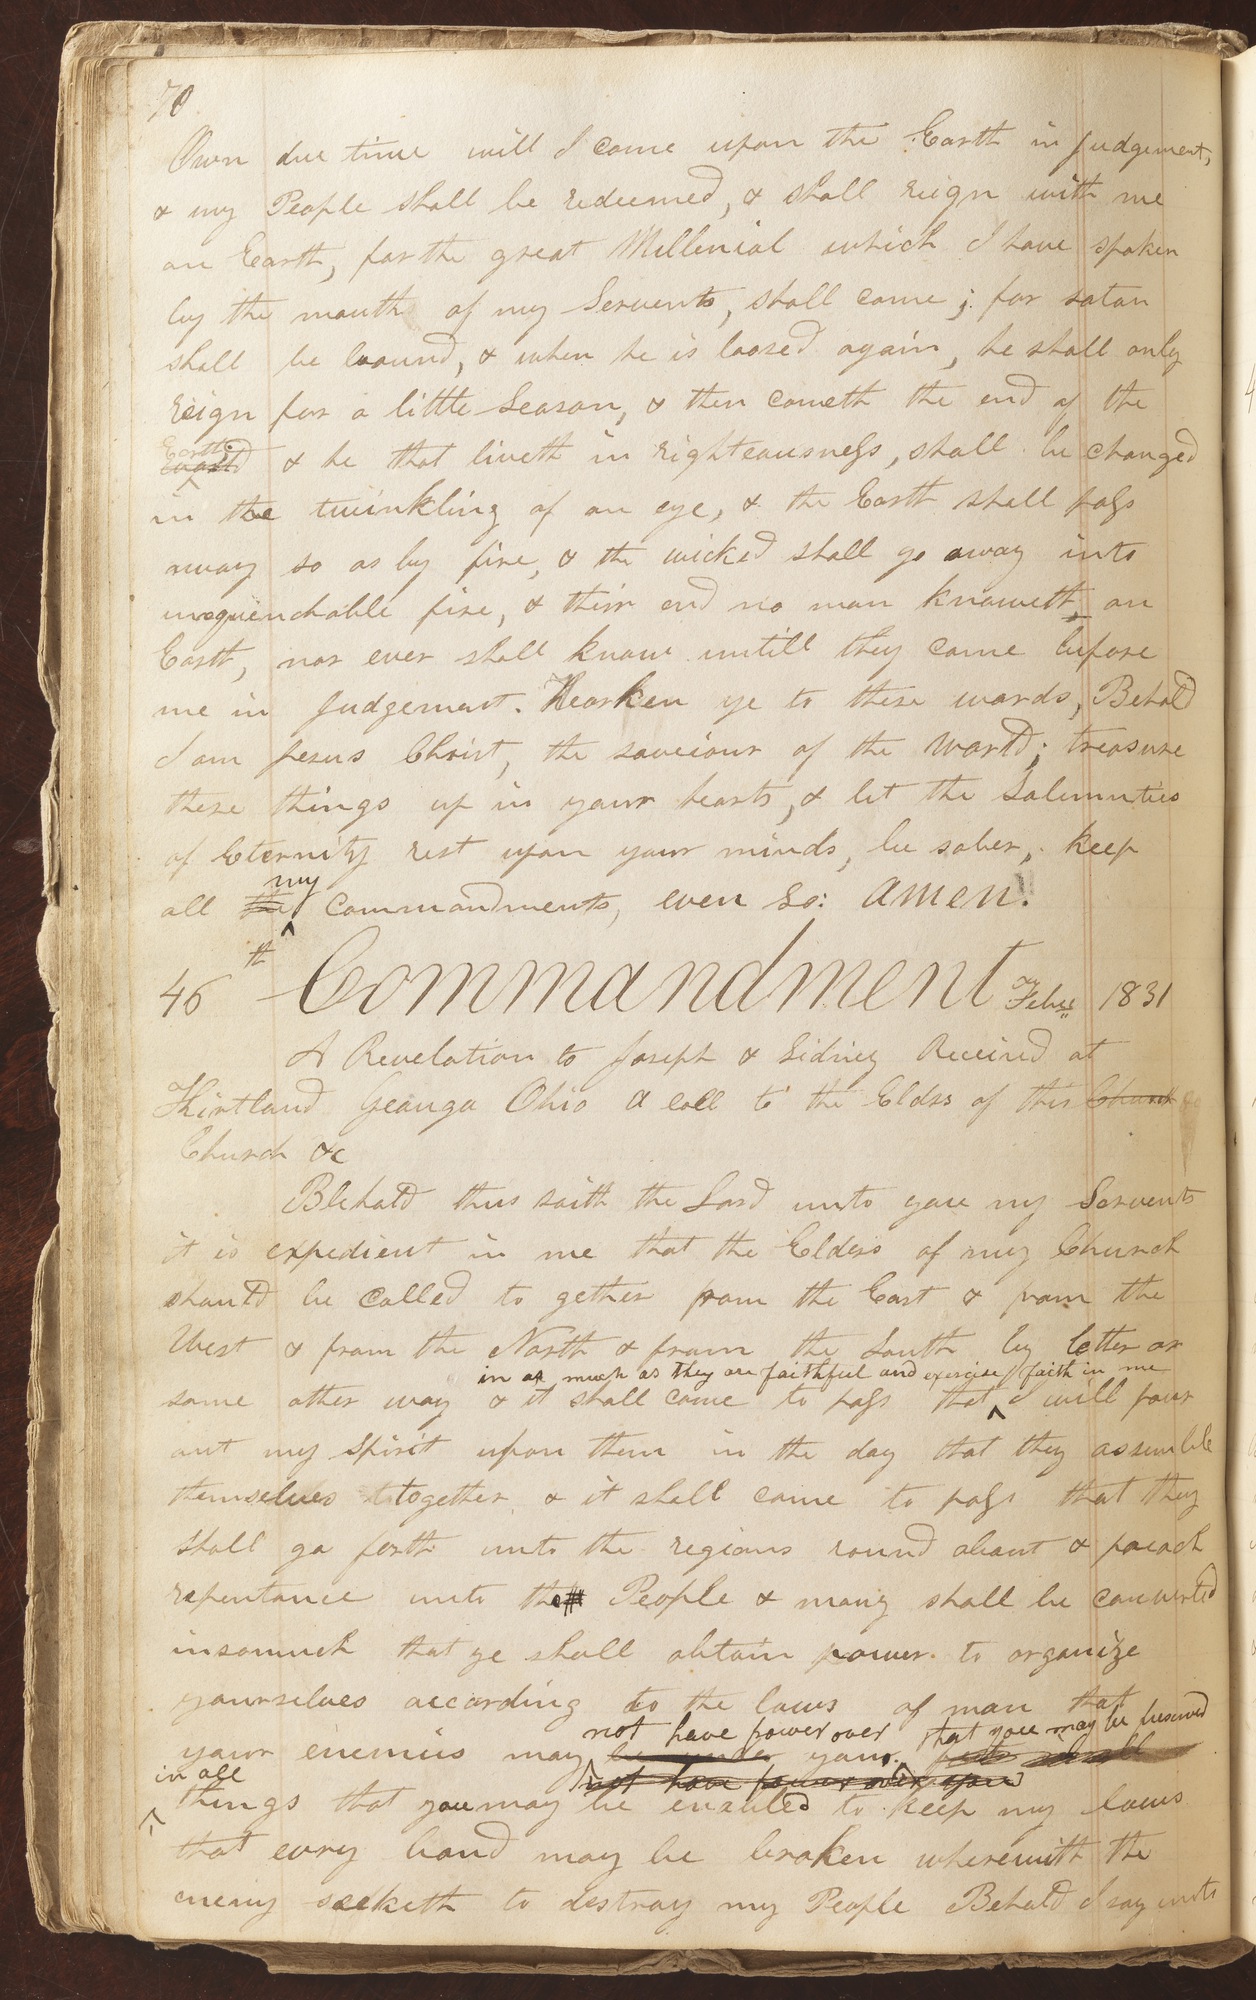 70
Own due time will I come upon the Earth in Judgement,
& my People shall be redeemed, & shall reign with me
on Earth, for the great Millenial which I have spoken
by the mouth of my Servents, shall come; for satan
shall be bound, & when he is loosed again, he shall only
reign for a little Season, & then cometh the end of the
Earth
& he that liveth in righteousness, shall be changed
in the twinkling of an eye, & the Earth shall pass
away so as by fire, & the wicked shall go away into
unquenchable fire, & their end no man knoweth, on
Earth, nor ever shall know untill they come before
me in Judgement. Hearken ye to these words, Behold
I am Jesus Christ, the saveiour of the World; treasure
these things up in your hearts, & let the Solemnities
of Eternity rest upon your minds, be sober, keep
my
all the commandments, even so: Amen.
46th Commandment Feby 1831
A Revelation to Joseph & Sidney Received at
Kirtland Geauga Ohio a call to the Elders of this Church
Church &c
Behold thus saith the Lord unto you my Servents
it is expedient in me that the Elders of my Church
should be called to gether from the East & from the
West & from the North & from the South by letter or
in as much as they are faithful and exercise faith in me
some other way & it shall come to pass that I will pour
out my Spirit upon them in the day that they assemble
themselves together & it shall come to pass that they
shall go forth unto the regions round about & preach
repentance unto the People & many shall be converted
insomuch that ye shall obtain power to organize
yourselves according to the laws of man that
not have power over that you may be preserved
your enemies may be under your
in all not have power over you
things that you may be enabled to keep my laws
that evry band may be broken wherewith the
enemy seeketh to destroy my People Behold I say unto